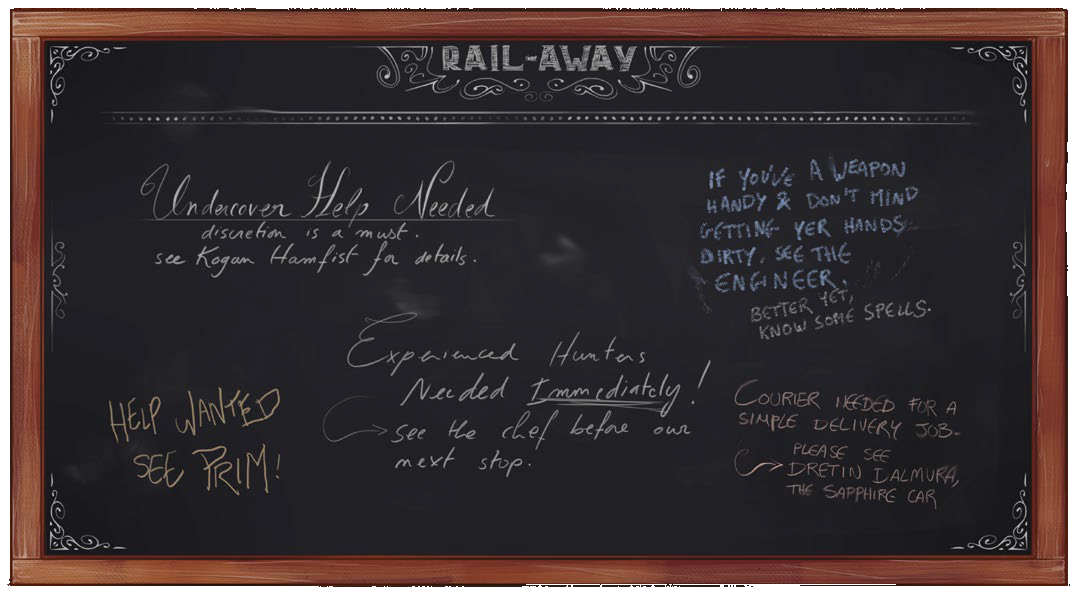 RAIL-AWAY
Undercover Help Needed
discretion is a must.
see Kogan Hamfist for details.
IF YOU'VE A WEAPON
HANDY & DON'T MIND
GETTING YER HANDS
DIRTY, SEE THE
ENGINEER.
BETTER YET,
KNOW SOME SPELLS.
Experienced Hunters
Needed Immediately!
see the chef before our
next stop.
HELP WANTED
SEE PRIM!
COURIER NEEDED FOR A
SIMPLE DELIVERY JOB-
PLEASE SEE
DRETIN DALMURA,
THE SAPPHIRE CAR